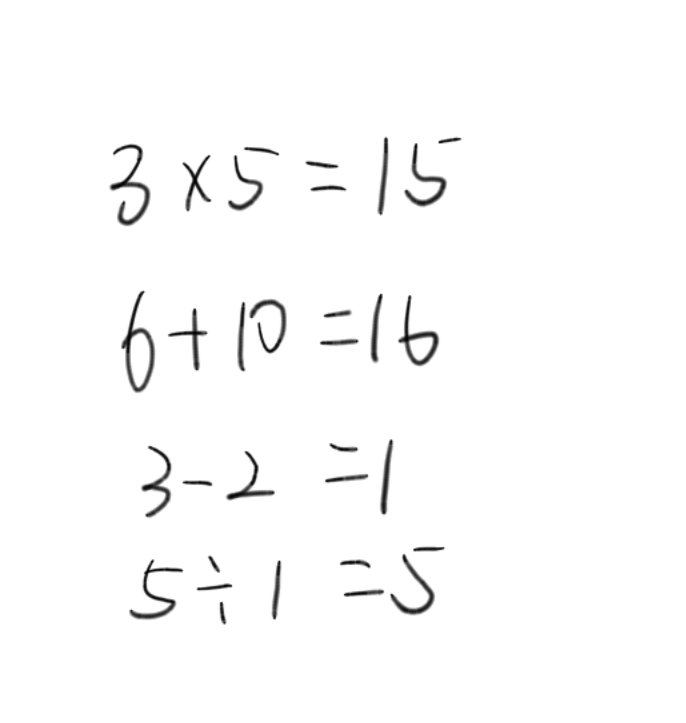 3×5=15
6+10=16
3-2=1
5÷1=5